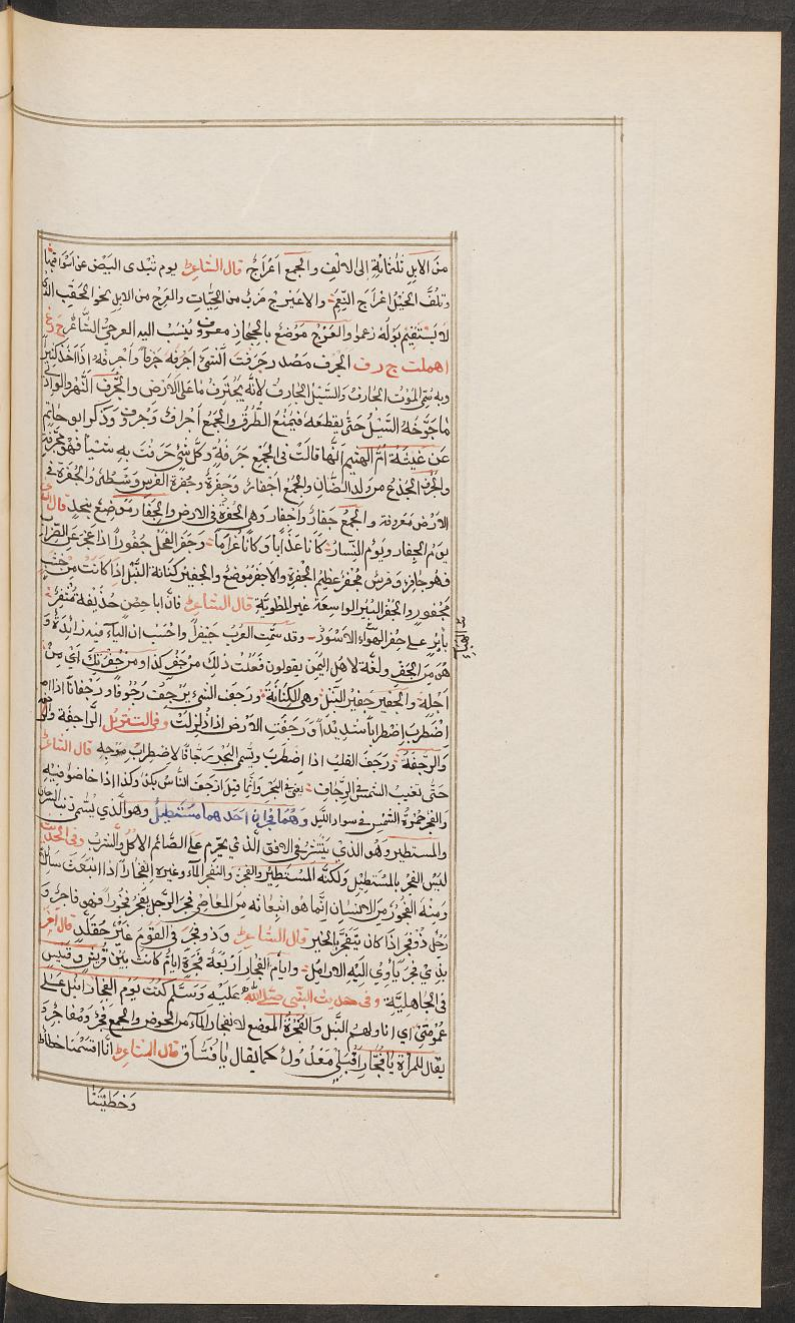 من الابل ثلثمائة الى الالف والجمع اعراج قال الشاعر يوم تبدى البيض عن اسوقها
وتلف الخيل اعراج النعم والاعيرج ضرب من الحيات والعرج من الابل نحو الحقب الذى
لا يستقيم بوله زعموا والعرج موضع بالحجاز معروف ينسب اليه العرجى الشاعر ج ر غ
اهملت ج ر ف الجرف مصدر جرفت الشئ اجرفه جرفا واجرفته اذا اخذ كثيرا
وبه سمى الموت الجارف والسيل الجارف لانه يجترف ما على الارض والجرف النهر والوادى
ما جوخه السيل حتى يقطعه فيمنع الطرق والجمع اجراف وجرف وذكر ابو حاتم
عن غيثة ام الهيثم انها قالت فى الجمع جرفة وكل شئ جرفت به شيئا فهو مجرفة
والجفر الجذع من ولد الضان والجمع اجفار وجفرة وجفرة الفرس وسطه والجفرة فى
الارض معروفة والجمع جفار واجفار وهى الحفرة فى الارض والجفار موضع بنجد قال
يوم الجفار ويوم النسار كانا عذابا وكانا غراما وجفر الفحل جفورا اذا عجز عن الضراب
فهو جافر وفرس مجفر عظيم الجفرة والاجفر موضع والجفير كنانة النبل اذا كانت من خشب
مجفور والجفر البئر الواسعة غير المطوية قال الشاعر فان ابا حصن حذيفة مثفر
باير على جفر الهواء الاسود وقد سمت العرب جيفرا واحسب ان الياء فيه زائدة و
هو من الجفر ولغة لاهل اليمن يقولون فعلت ذلك من جفر كذا ومن جفرتك اى من
اجله والجفير جفير النبل وهى الكنانة ورجف الشئ يرجف رجوفا ورجفانا اذا
اضطرب اضطرابا شديدا ورجفت الارض اذا زلزلت وفى التنزيل الراجفة
والرجفة ورجف القلب اذا اضطرب ويسمى البحر رجافا لاضطراب موجه قال الشاعر
حتى تغيب الشمس فى الرجاف يعنى فى البحر وانما قيل ارجف الناس بكذا وكذا اذا خاضوا فيه
والفجر حمرة الشمس فى سواد الليل وهما فجران احدهما مستطيل وهو الذى يسمى ذنب السرحان
والمستطير وهو الذى ينتشر فى الافق الذى يحرم على الصائم الاكل والشرب وفى الحديث
ليس الفجر بالمستطيل ولكنه المستطير والفجر وانفجر الماء وغيره انفجارا اذا انبعث سائلا
ومنه الفجور من الانسان انما هو انبعاثه من المعاصى فجر الرجل يفجر فجورا فهو فاجر و
رجل ذو فجر اذا كان يتفجر بالخير قال الشاعر وذو فجر فى القوم غير حقلد قال اخر
بذى فجر يأوى اليه الارامل وايام الفجار اربعة فجرة ايام كانت بين قريش وقيس
فى الجاهلية وفى حديث النبى صلى الله عليه وسلم كنت يوم الفجار انبل على
عمومتى اى اناولهم النبل والفجرة الموضع لانفجار الماء من الحوض والجمع فجر ومفاجره
يقال للمراة يا فجار اقبلى معدول كما يقال يا فساق قال الشاعر انا اقتسمنا خطتانا
وخطيتنا